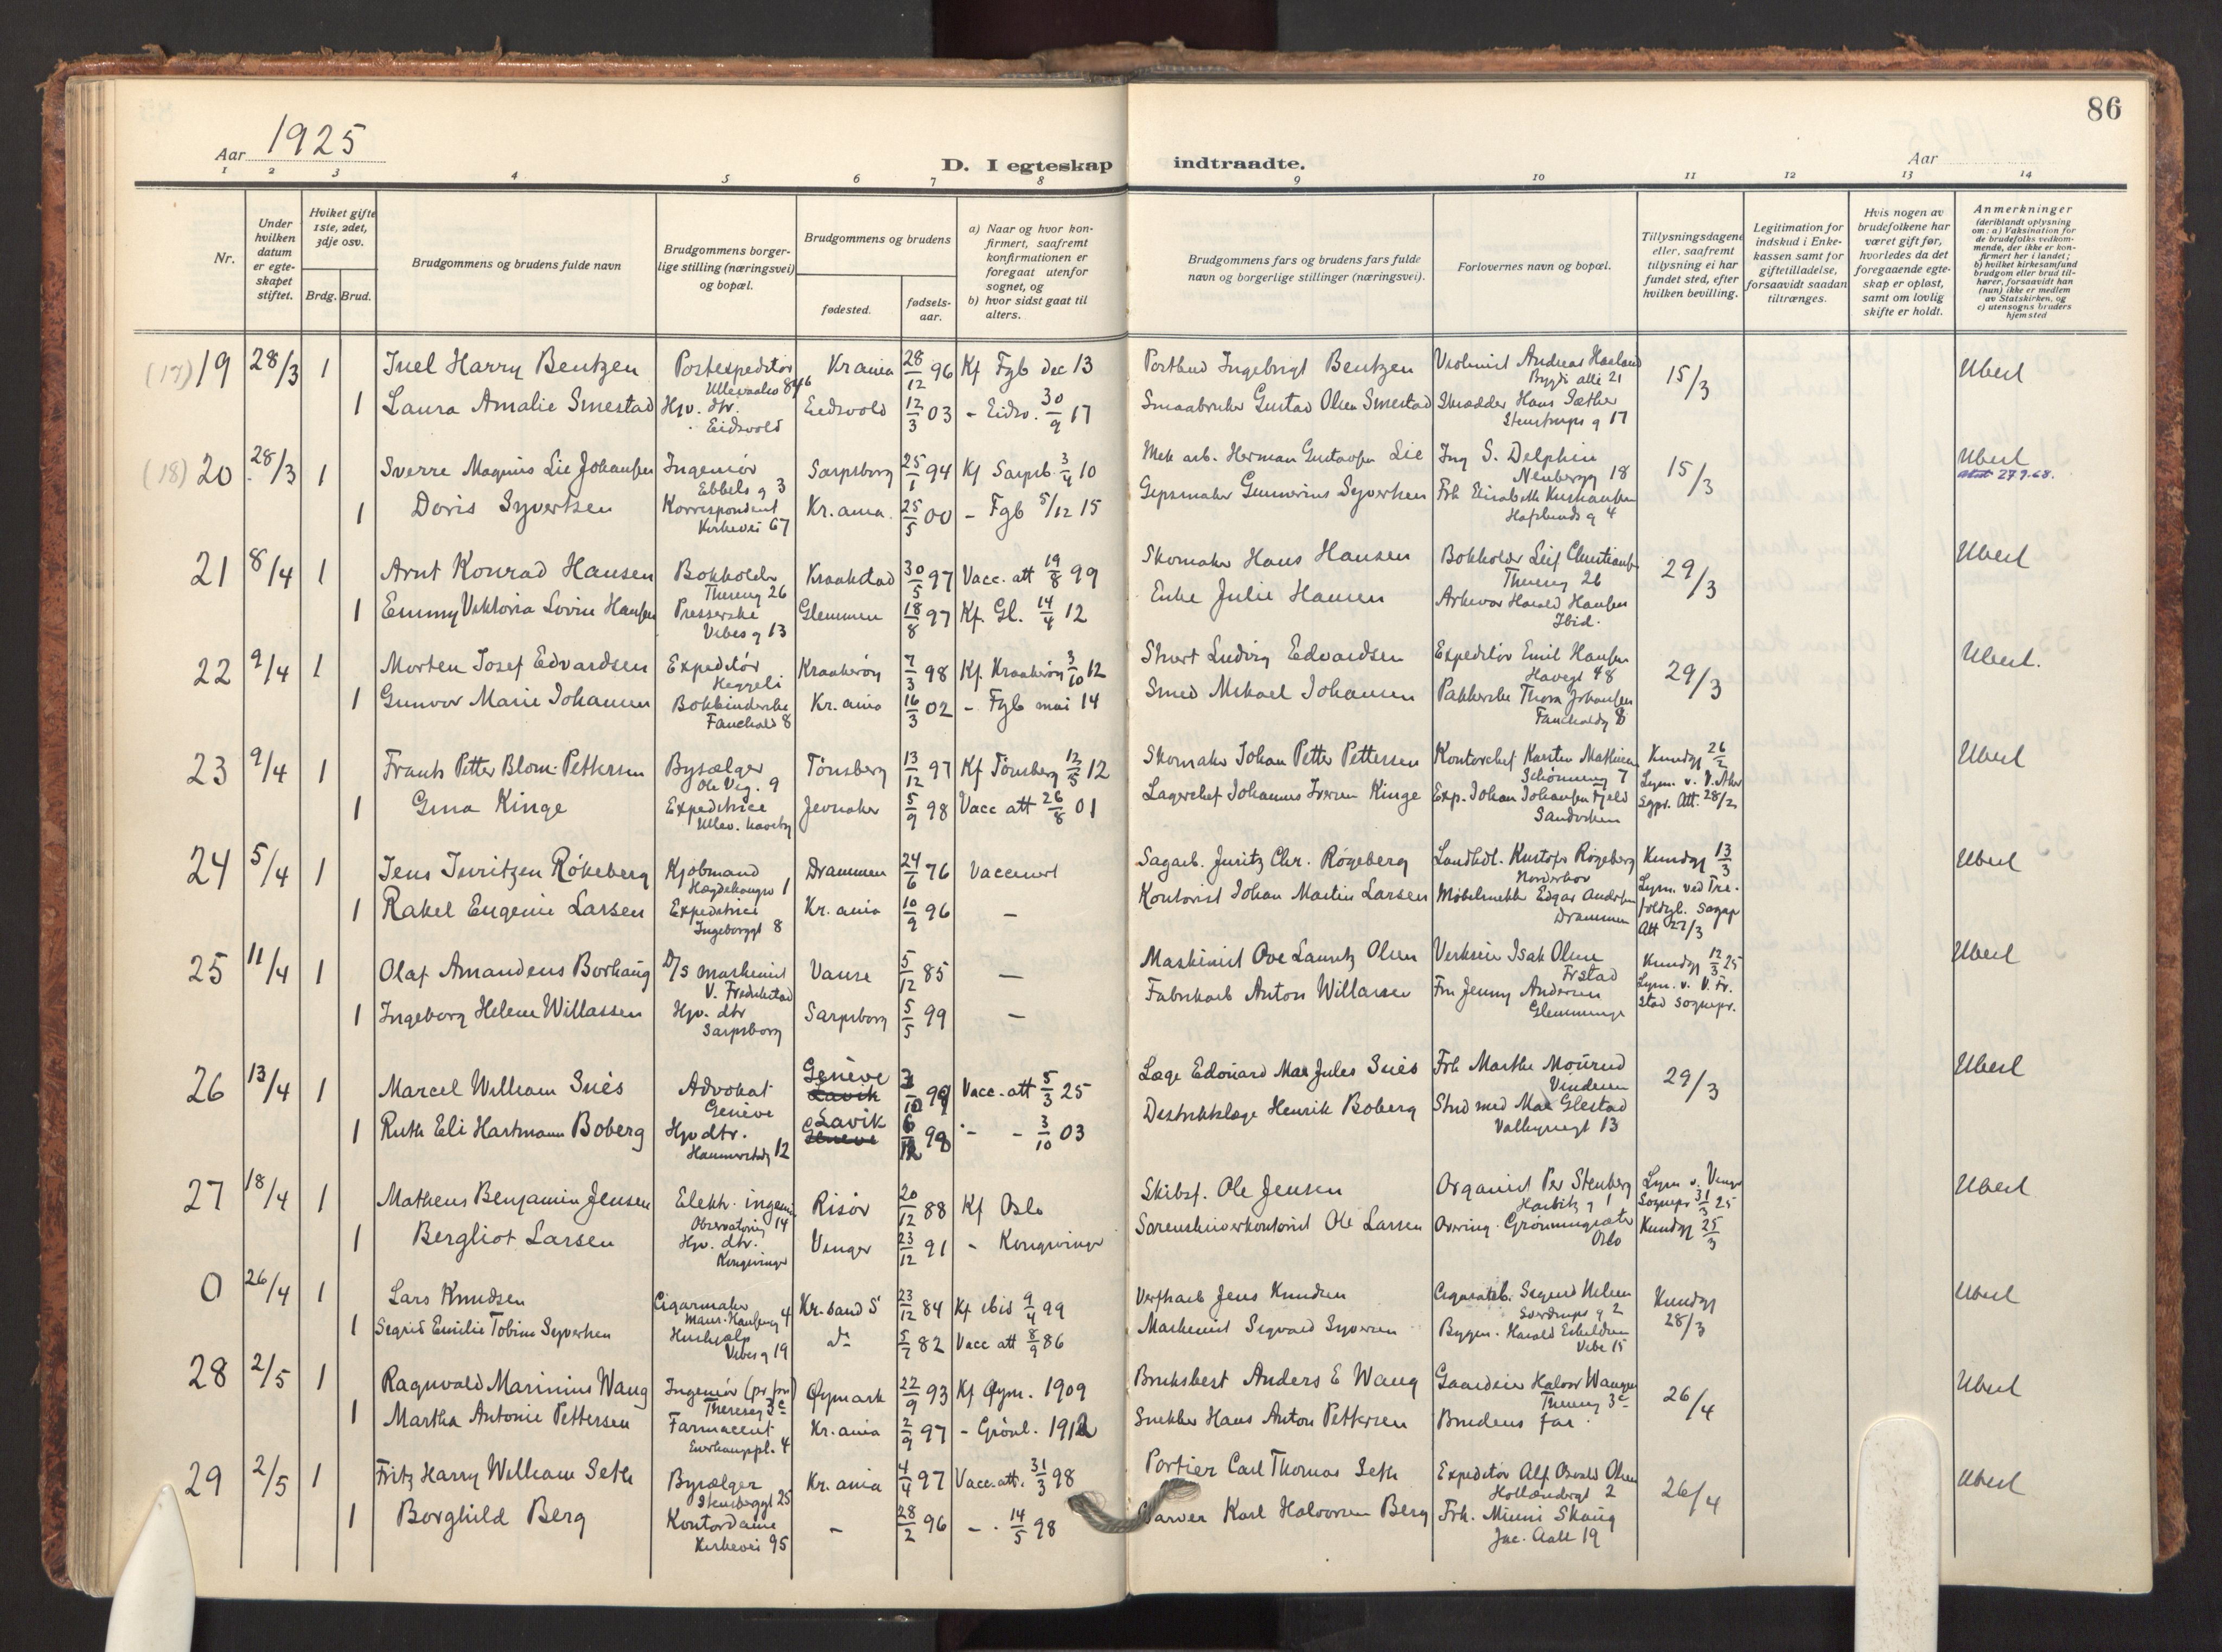 86
Aar 1925
D. I egteskap indtraadte.
Aar
1 2 3 4 5 6 7 8 9 10 11 12 13 14
Nr.
Under hvilken datum er egteskapet stiftet.
Hviket gifte 1ste, 2det, 3dje osv.
Brdg. Brud.
Brudgommens og brudens fulde navn
Brudgommens borgerlige stilling (næringsvei) og bopæl.
Brudgommens og brudens
fødested.
fødselsaar.
a) Naar og hvor konfirmert, saafremt konfirmationen er foregaat utenfor sognet, og
b) hvor sidst gaat til alters.
Brudgommens fars og brudens fars fulde navn og borgerlige stillinger (næringsvei).
Forlovernes navn og bopæl.
Tillysningsdagene eller, saafremt tillysning ei har fundet sted, efter hvilken bevilling.
Legitimation for indskud i Enkekassen samt for giftetilladelse, forsaavidt saadan tiltrænges.
Hvis nogen av brudefolkene har været gift før, hvorledes da det foregaaende egteskap er opløst, samt om lovlig skifte er holdt.
Anmerkninger (deriblandt oplysning om: a) Vaksination for de brudefolks vedkommende, der ikke er konfirmert her i landet; b) hvilket kirkesamfund brudgom eller brud tilhører, forsaavidt han (hun) ikke er medlem av Statskirken, og c) utensogns bruders hjemsted
(17) 19 28/3 1 Juel Harry Bentzen Postexpeditør Kr.ania 28/12 96 Kf Fgb dec 13 Postbud Ingebrigt Bentzen Violinist Andreas Haaland 15/3 Ubest
Bygdø allé 21
1 Laura Amalie Smestad Hjv. dtr. Eidsvold 12/3 03 - Eidsv. 30/9 17 Smaabruker Gustav Olsen Smestad Skrædder Hans Sæther
Eidsvold Stenstrups g 17
(18) 20 28/3 1 Sverre Magnus Lie Johansen Ingeniør Sarpsborg 25/1 94 Kf Sarpsb. 3/4 10 Mek arb. Herman Gustavsen Lie Ing S. Delphin 15/3 Ubest
Ebbels g 3 Neubergg 18 27.9.68.
1 Doris Syvertsen Korrespondent Kr.ania. 25/5 00 - Fgb 5/12 15 Gipsmaker Gunnerius Syvertsen Frk Elisabeth
Kirkevei 67 Hafslunds g 4
21 8/4 1 Arnt Konrad Hansen Bokholder Kraakstad 30/5 97 Vacc. att 19/8 99 Skomaker Hans Hansen Bokholder Leif Christiansen 29/3 Ubest
Thereseg 26 Thereseg 26
1 Emmy Viktoria Lovise Hansen Presserske Glemmen 18/8 97 Kf. Gl. 14/4 12 Enke Julie Hansen Harald Hansen
Vibes g 13 Ibid.
22 9/4 1 Morten Josef Edvardsen Expeditør Kraakerøy 7/3 98 Kf Kraakerøy 3/10 12 Ludvig Edvardsen Expeditør Emil Hansen 29/3 Ubest.
Heggeli Havegt 48
1 Gunvor Marie Johansen Bokbinderske Kr.ania 16/3 02 - Fgb mai 14 Smed Mikael Johansen Pakkerske Thora Johansen
Fauchalds 8 Fauchaldsg 8
23 9/4 1 Frants Petter Blom-Pettersen Bysælger Tønsberg 13/12 97 Kf Tønsberg 12/5 12 Skomaker Johan Petter Pettersen Kontorchef Karsten Mathisen Kundgj 26/2 Ubest
Ole Vig. 9 Schønningg 7 Lysn. v. V. Aker
1 Gina Kinge Expeditrice Jevnaker 5/9 98 Vacc att 26/8 01 Lagerchef Johannes Iversen Kinge Exp. Johan Johansen Fjeld Sgpr. Att. 28/2
Ullev. haveby Sandviken
24 5/4 1 Jens Juritzen Røkeberg Kjøbmand Drammen 24/6 76 Vaccinert Sagarb. Juritz Chr. Røgeberg Landhdl. Kristofer Røgeberg Kundgj 13/3 Ubest
Hægdehaugsv 1 Norderhov Lysn. ved Tre-
1 Rakel Eugenie Larsen Expeditrice Kr.ania 10/9 96 - Kontorist Johan Martin Larsen Møbelsnekker Edgar Andersen foldigh. sognepr
Ingeborggt 8 Drammen Att 27/3
25 11/4 1 Olaf Amandeus Borhaug D/S maskinist Vanse 5/12 85 - Maskinist Ove Lauritz Olsen Verkseier Isak Olsen Kundgj 12/3 25 Ubest
V. Fredrikstad Frstad Lysn. v. V. Fr.
1 Ingeborg Helene Willassen Hjv. dtr Sarpsborg 5/5 99 - Fabrikarb Anton Willassen Fru Jenny Andersen stad sognepr.
Sarpsborg Glemminge
26 13/4 1 Marcel William Suès Advokat Genève 99 Vacc. att 5/3 25 Læge Edouard Mac Jules Suès Frk Marthe Mourud 29/3 Ubest
Genève Vinderen
1 Ruth Eli Hartmann Boberg Hjv dtr. Lavik 98 - - 3/10 03 Distriktslæge Henrik Boberg Stud med Max Glestad
Hammerstadg 12 Valkyriegt 13
27 18/4 1 Matheus Benjamin Jensen Elektr. ingeniør Risør 20/12 88 Kf Oslo Skibsf. Ole Jensen Organist Per Steenberg Lysn v. Vinger Ubest
Observatorieg 14 Harbitz g 1 Sognepr 31/3 25
1 Bergliot Larsen Hjv. dtr. Vinger 23/12 91 - Kongsvinger Sorenskriverkontorist Ole Larsen Grønningsæter Kundgj 25/3
Kongsvinger Oslo
0 26/4 1 Lars Knudsen Cigarmaker Kr.sand S 23/12 84 Kf ibid 9/4 99 Verftsarb Jens Knudsen Cigararb. Sigurd Nielsen Kundgj Ubest
Maur. Hansensg 4 Sverdrups g 2 28/3
1 Sigrid Emilie Tobine Syvertsen Hushjælp do 5/7 82 Vacc att 8/9 86 Maskinist Sigvald Syversen Byggm. Harald Eskildsen
Vibes g 19 Vibe 15
28 2/5 1 Ragnvald Marinius Waug Ingeniør Øymark 22/9 93 Kf Øym. 1909 Bruksbest Anders E Waug Gaardeier Halvor Wangen 26/4 Ubest
Thereseg 3c Thereseg 3c
1 Martha Antonie Pettersen Farmaceut Kr.ania 2/9 97 - Grønl. 1912 Snekker Hans Anton Pettersen Brudens far.
Enerhaugpl. 4
29 2/5 1 Fritz Harry William Seth Bysælger Kr.ania 4/4 97 Vacc. att. 31/3 98 Portier Carl Thomas Seth Expeditør Alf Osvald Olsen 26/4 Ubest
Stensberggt 25 Hollendergt 2
1 Borghild Berg Kontordame - 28/2 96 - . 14/5 98 Garver Karl Halvorsen Berg Frk. Mimi Skaug
Kirkevei 95 Jac. Aall 19